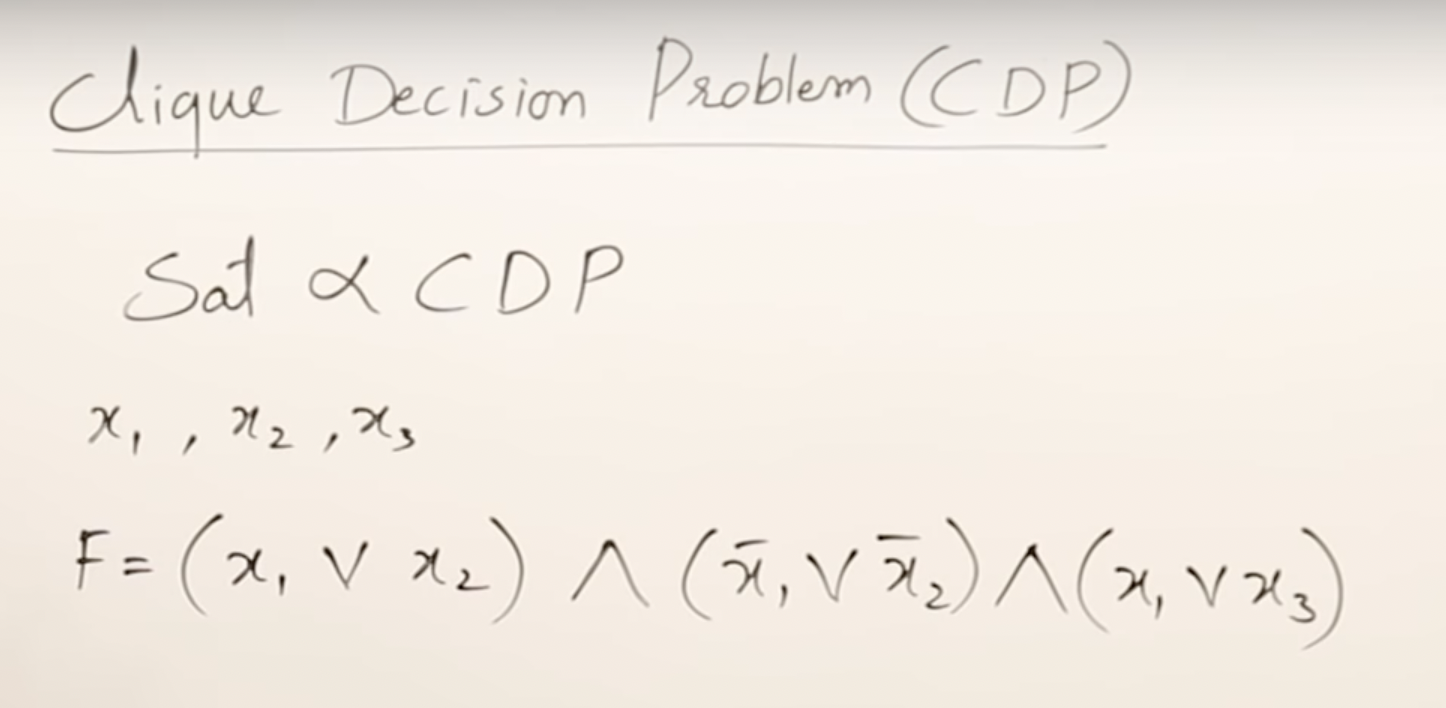 Clique Decision Problem (CDP)
Sat ∝ CDP
x₁, x₂, x₃
F = (x₁ ∨ x₂) ∧ (x̄₁ ∨ x̄₂) ∧ (x₁ ∨ x₃)